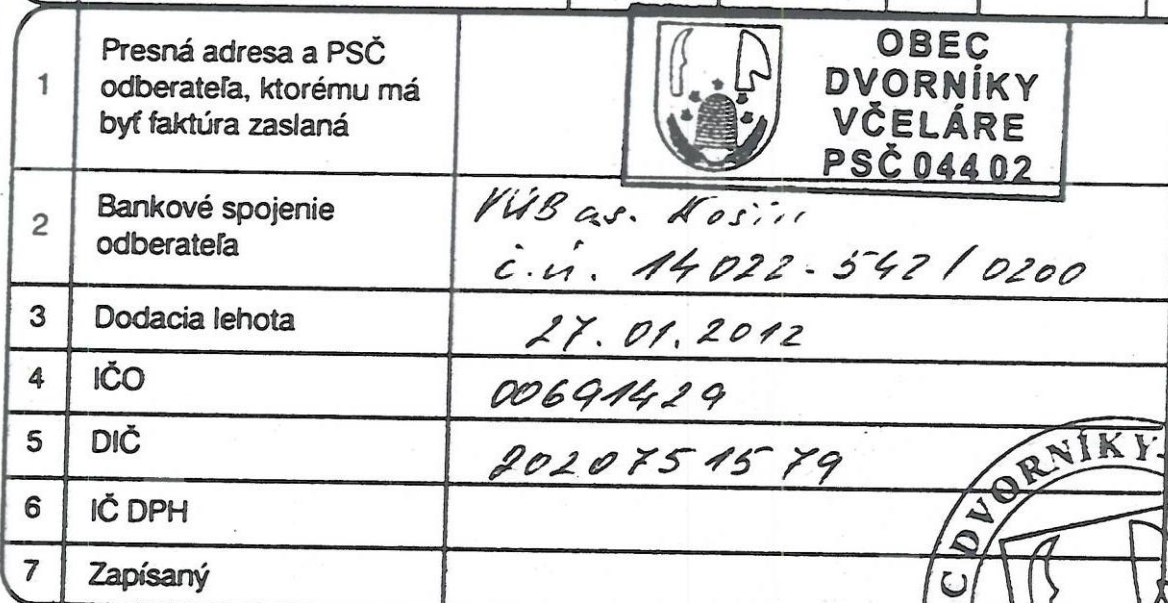 1 Presná adresa a PSČ
odberateľa, ktorému má
byť faktúra zaslaná
OBEC
DVORNÍKY
VČELÁRE
PSČ 044 02
2 Bankové spojenie
odberateľa
VÚB a.s. Košice
č.ú. 14022-542/0200
3 Dodacia lehota 27.01.2012
4 IČO 00691429
5 DIČ 2020751579
6 IČ DPH
7 Zapísaný
C DVORNÍKY-